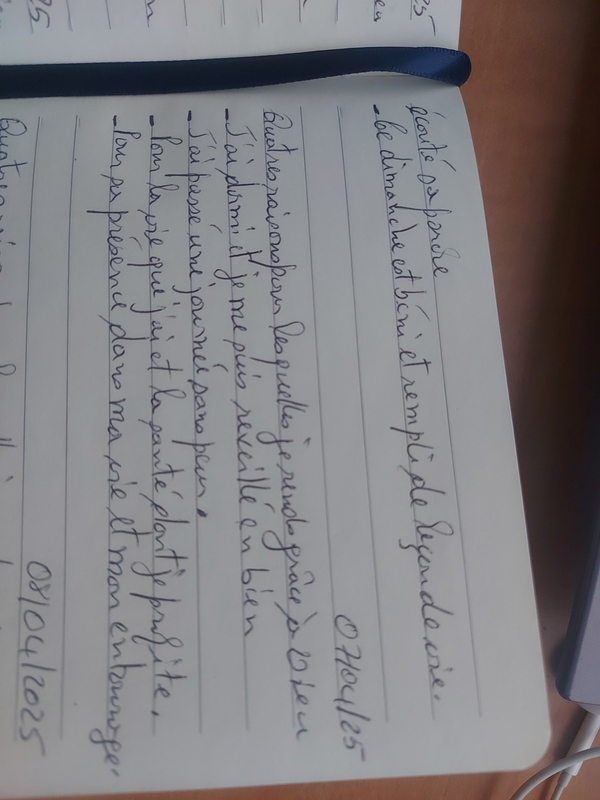 écouté sa parole
- Le dimanche est béni et rempli de leçon de vie.
07/04/25
Quatres raisons pour lesquelles je rends grâce à Dieu
- J'ai dormi et je me suis réveillé en bien
- J'ai passé une journée sans peur.
- Pour la vie que j'ai et la santé dont je profite.
- Pour sa présence dans ma vie et mon entourage.
08/04/2025